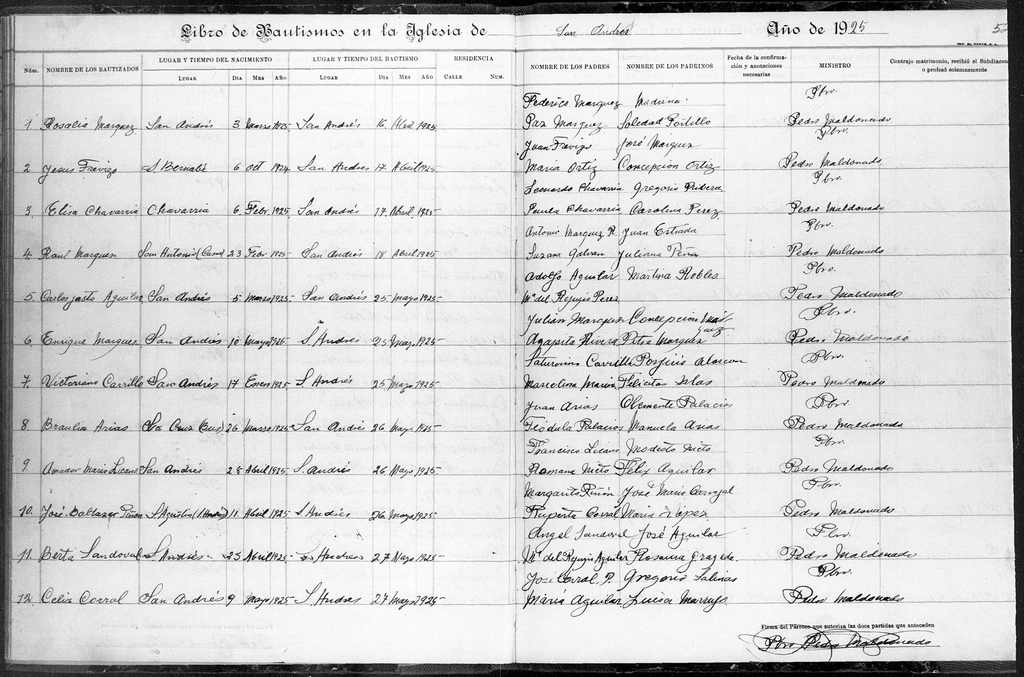 Libro de Bautismos en la Iglesia de San Andrés Año de 1925 5
Núm. NOMBRE DE LOS BAUTIZADOS LUGAR Y TIEMPO DEL NACIMIENTO LUGAR Y TIEMPO DEL BAUTISMO RESIDENCIA NOMBRE DE LOS PADRES NOMBRE DE LOS PADRINOS Fecha de la confirmación y anotaciones necesarias MINISTRO Contrajo matrimonio, recibió el Subdiaconado o profesó solemnemente
LUGAR DIA MES AÑO LUGAR DIA MES AÑO CALLE NUM.
Federico Marquez Madrina: Pbro.
1 Rosalio Marquez San Andrés 3 Marzo 1925 San Andrés 16 Abril 1925 Paz Marquez Soledad Portillo Pedro Maldonado
Juan Trevizo José Marquez Pbro.
2 Jesus Trevizo S. Bernabé 6 Oct 1924 San Andres 17 Abril 1925 Maria Ortiz Concepcion Ortiz Pedro Maldonado
Leonardo Chavarria Gregorio Rivera Pbro.
3. Elisa Chavarria Chavarria 6 Febr. 1925 San Andrés 17 Abril 1925 Paula Chavarria Carolina Perez Pedro Maldonado
Antonio Marquez R. Juan Estrada Pbro.
4. Raul Marquez San Antonio (Cano) 23 Febr 1925 San Andrés 18 Abril 1925 Susana Galvan Juliana Peña Pedro Maldonado
Adolfo Aguilar Martina Robles Pbro.
5. Carlos Justo Aguilar San Andrés 5 Marzo 1925 San Andrés 25 Mayo 1925 Ma del Refugio Perez Pedro Maldonado
Julián Marquez Concepcion Pbro.
6. Enrique Marquez San Andrés 10 Mayo 1925 S. Andres 25 Mayo 1925 Agapita Rivera Petra Marquez Pedro Maldonado
Saturnino Carrillo Porfirio Alarcon Pbro.
7. Victoriano Carrillo San Andrés 17 Enero 1925 S. Andrés 25 Mayo 1925 Marcelina Felicitas Mas Pedro Maldonado
Juan Arias Clemente Palacios Pbro.
8. Braulia Arias Sta Cruz 26 Marzo 1925 San Andrés 26 Mayo 1925 Teodula Palacios Manuela Arias Pedro Maldonado
Francisco Licano Modesto Nieto Pbro.
9. Amador Mario Licano San Andrés 28 Abril 1925 S. Andrés 26 Mayo 1925 Romana Nieto Felix Aguilar Pedro Maldonado
Margarito Piñon José Maria Carvajal Pbro.
10. José Baltazar Piñon S. Agustin 11 Abril 1925 S. Andrés 26 Mayo 1925 Ruperta Corral Maria Lopez Pedro Maldonado
Angel Sandoval José Aguilar Pbro.
11. Berta Sandoval S. Andrés 23 Abril 1925 S. Andres 27 Mayo 1925 Ma del Refugio Aguilar Rosaura Granado Pedro Maldonado
José Corral P. Gregorio Salinas Pbro.
12. Celia Corral San Andrés 9 Mayo 1925 S. Andres 27 Mayo 1925 Maria Aguilar Luisa Marrufo Pedro Maldonado
Firma del Párroco que autoriza las doce partidas que anteceden
Pbro. Pedro Maldonado